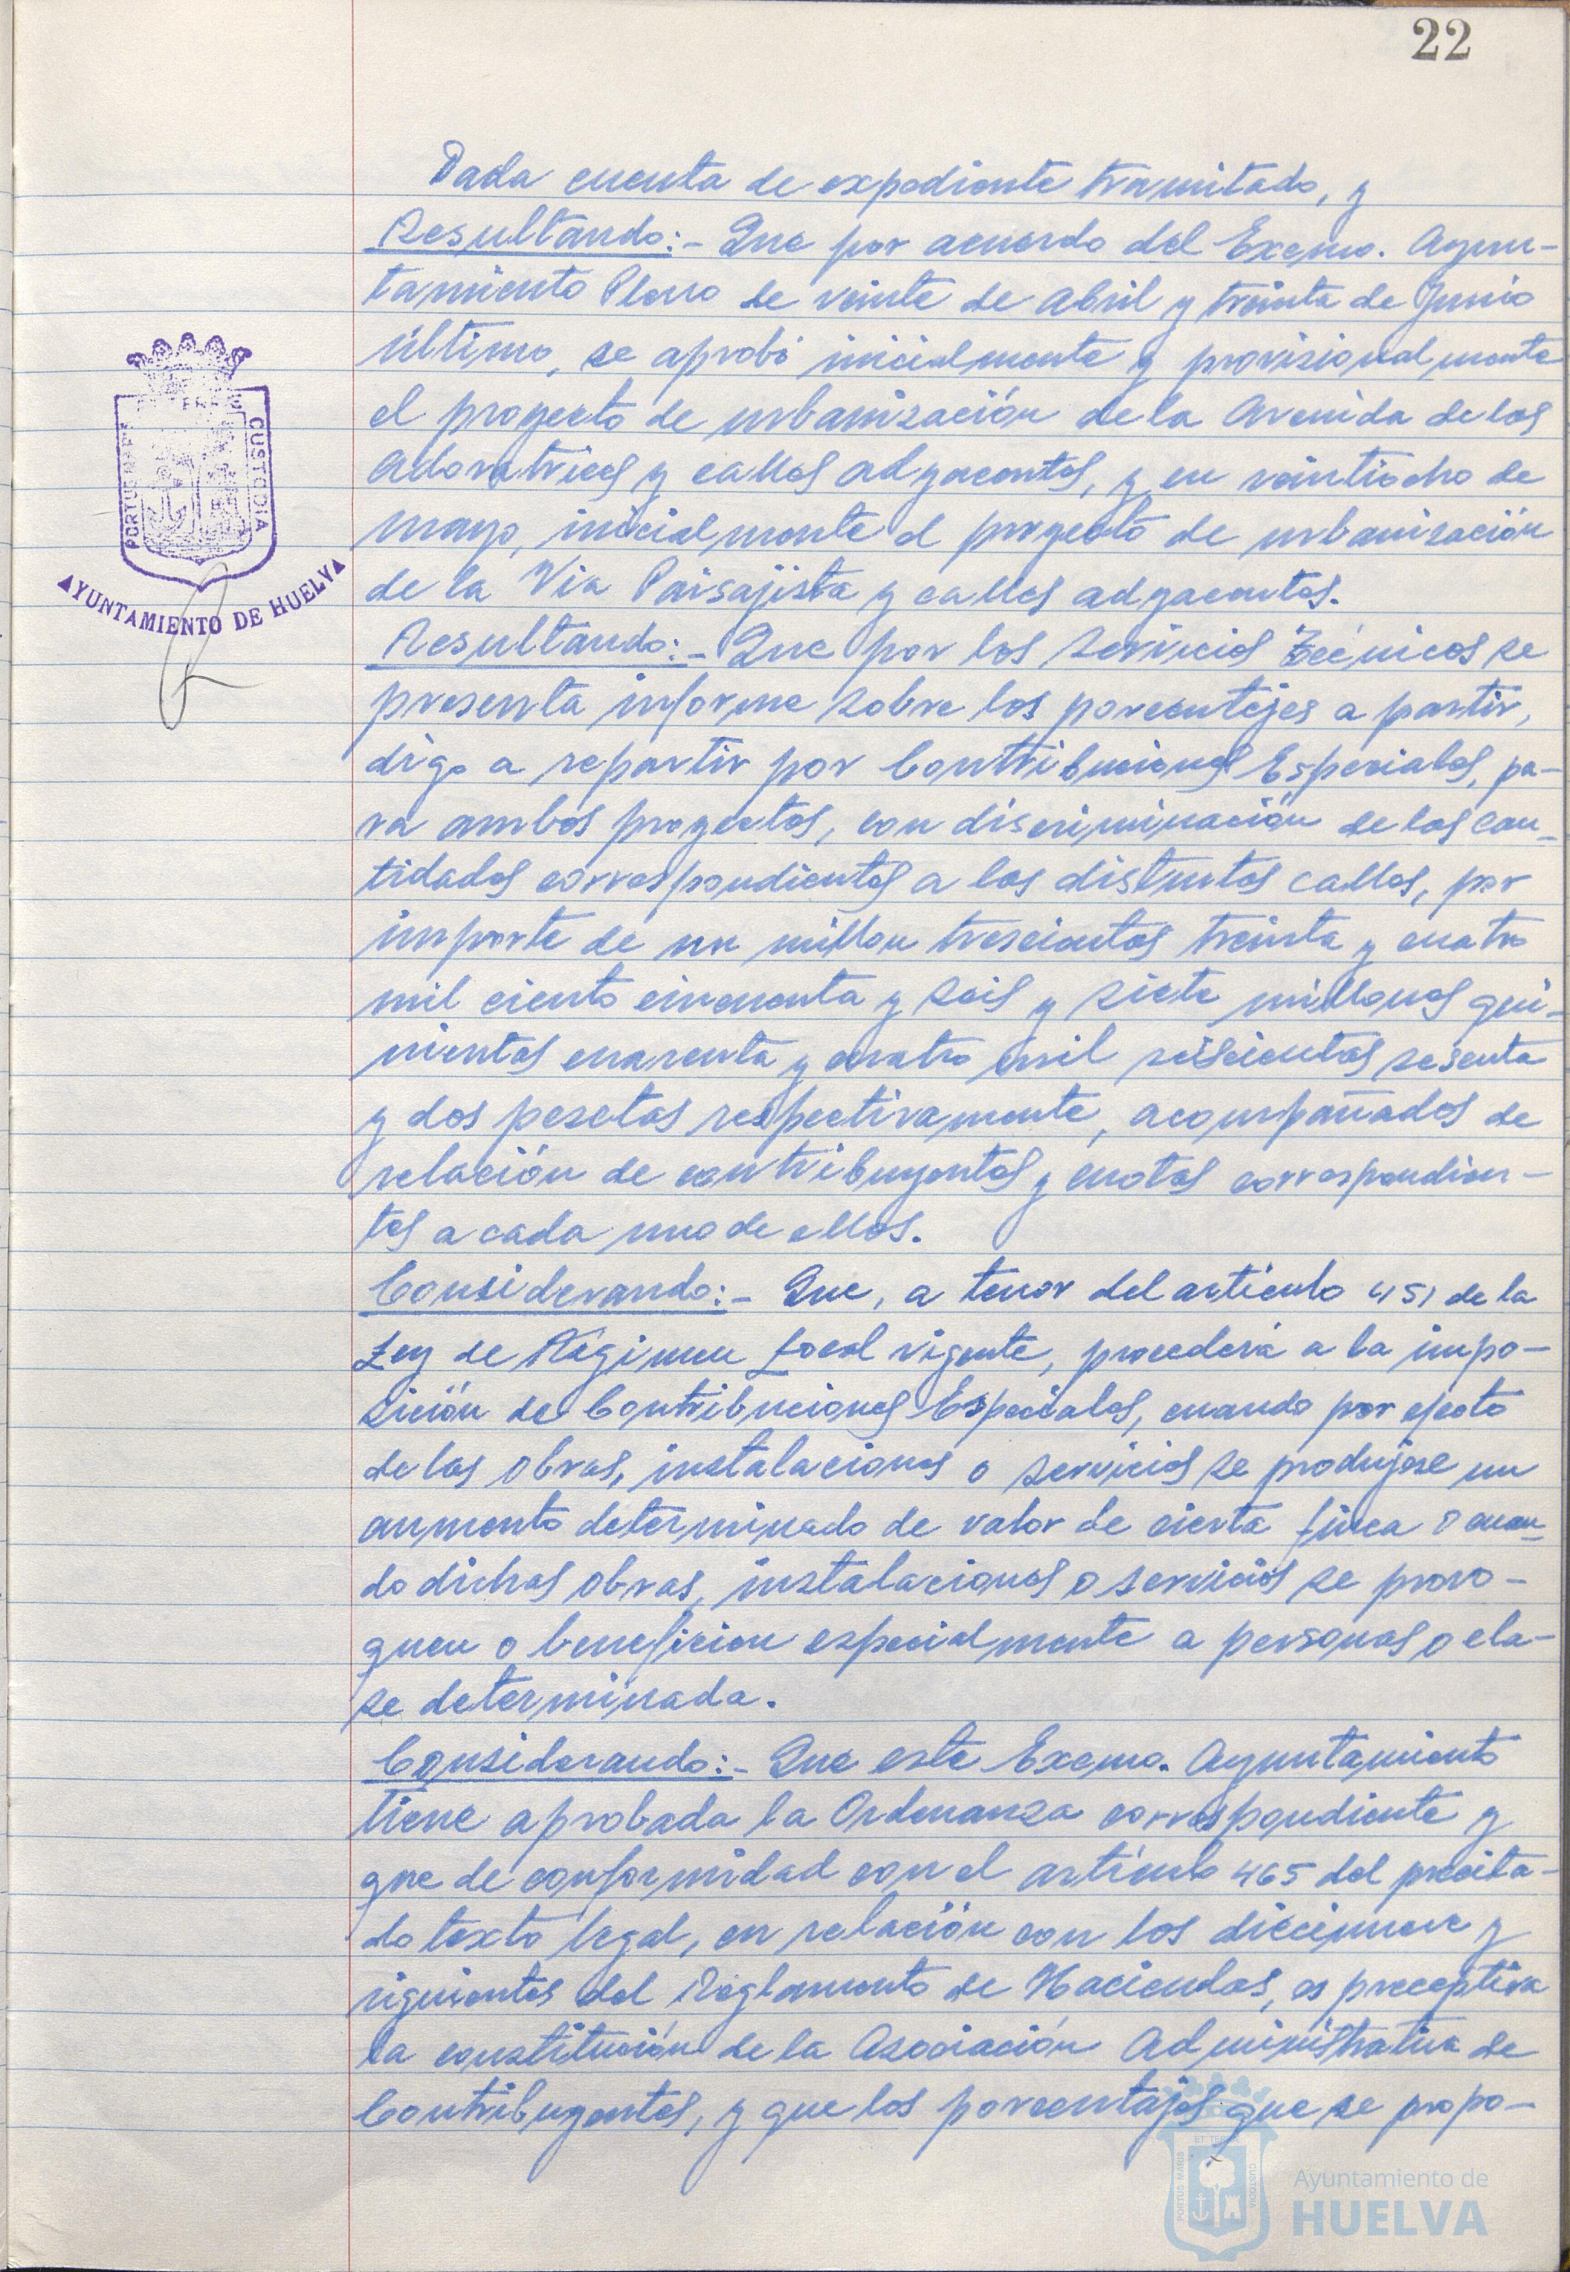 22
Dada cuenta de expediente tramitado, y
Resultando:- Que por acuerdo del Excmo. Ayun-
tamiento Pleno de veinte de Abril y treinta de Junio
último, se aprobó inicialmente y provisionalmente
el proyecto de urbanización de la Avenida de las
Adoratrices y calles adyacentes, y en veintiocho de
mayo, inicialmente el proyecto de urbanización
de la Via Paisajista y calles adyacentes.
Resultando:- Que por los Servicios Técnicos se
presenta informe sobre los porcentejes a partir,
digo a repartir por Contribuciones Especiales, pa-
ra ambos proyectos, con discriminación de las can-
tidades correspondientes a las distintas calles, por
importe de un millon trescientas treinta y cuatro
mil ciento cincuenta y seis y siete millones qui-
nientas cuarenta y cuatro mil seiscientas sesenta
y dos pesetas respectivamente, acompañados de
relación de contribuyentes y cuotas correspondien-
tes a cada uno de ellos.
Considerando:- Que, a tenor del artículo 451 de la
Ley de Régimen Local vigente, procederá a la impo-
sición de Contribuciones Especiales, cuando por efecto
de las obras, instalaciones o servicios se produjese un
aumento determinado de valor de cierta finca o cuan-
do dichas obras, instalaciones o servicios se provo-
quen o beneficien especialmente a personas o cla-
se determinada.
Considerando:- Que este Excmo. Ayuntamiento
tiene aprobada la Ordenanza correspondiente y
que de conformidad con el artículo 465 del precita-
do texto legal, en relación con los diecinueve y
siguientes del Reglamento de Haciendas, es preceptiva
la constitución de la Asociación Administrativa de
Contribuyentes, y que los porcentajes que se propo-
PORTUS MARIS ET TERRE CUSTODIA
AYUNTAMIENTO DE HUELVA
PORTUS MARIS ET TERRE CUSTODIA
Ayuntamiento de
HUELVA